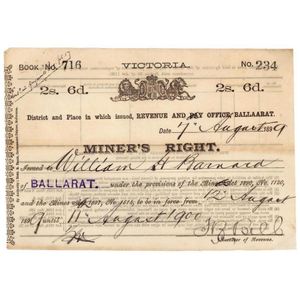 BOOK No. 716 VICTORIA. No. 234
2s. 6d. 2s. 6d.
District and Place in which issued, REVENUE AND PAY OFFICE, BALLAARAT.
Date 7th August 1899
MINER'S RIGHT.
Issued to William H Barnard
of BALLARAT. under the provisions of the Mines Act 1890, No. 1120,
and the Mines Act 1897, No. 1514, to be in force from 12th August
1899 until 11th August 1900
Receiver of Revenue.